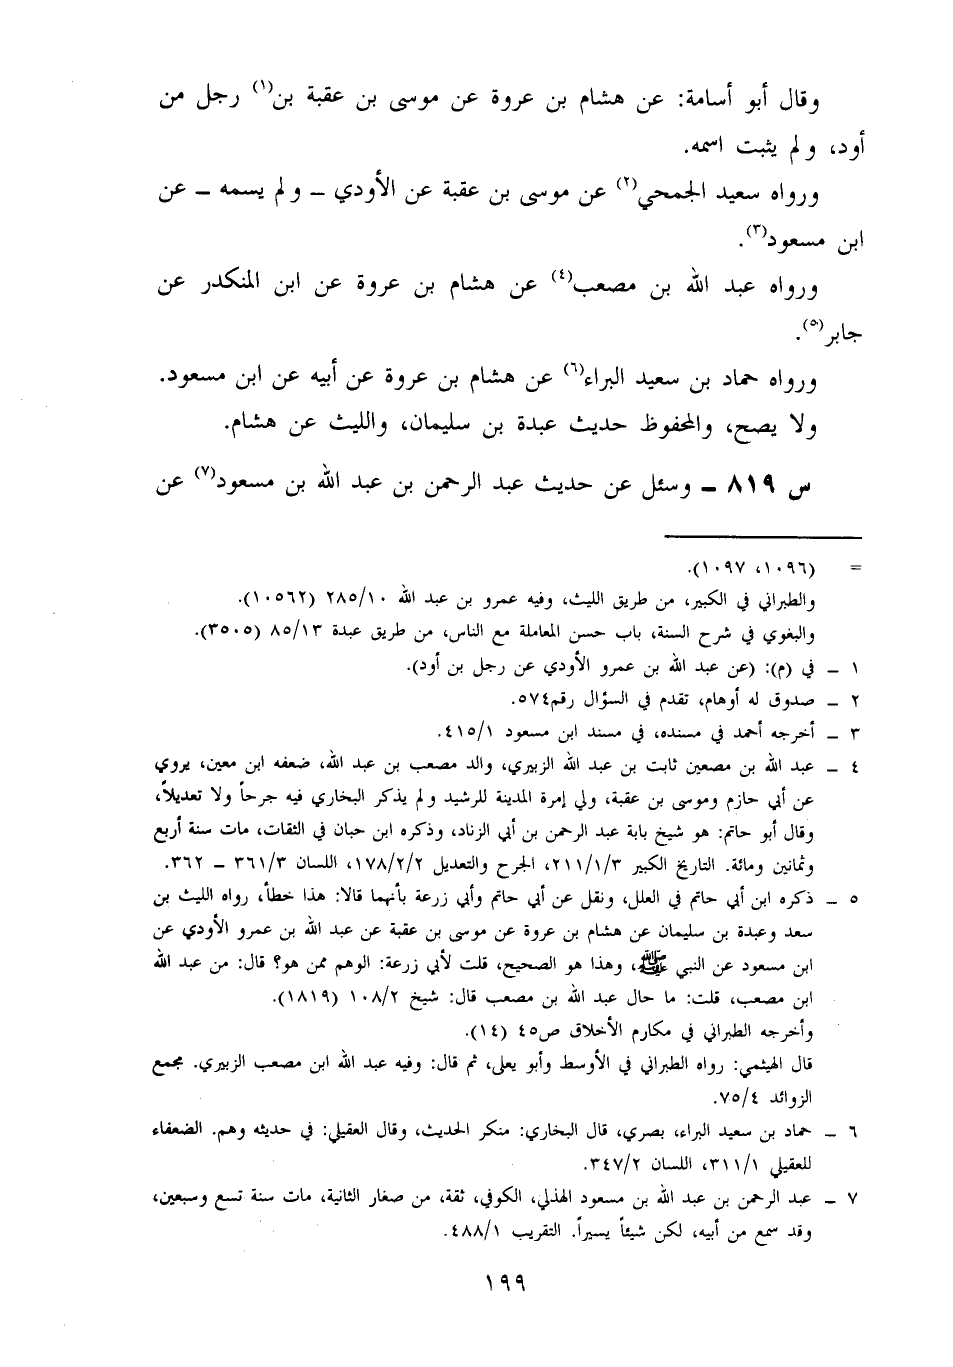 وقال أبو أسامة: عن هشام بن عروة عن موسى بن عقبة بن(١) رجل من
أود، ولم يثبت اسمه.
ورواه سعيد الجمحي(٢) عن موسى بن عقبة عن الأودي – ولم يسمه – عن
ابن مسعود(٣).
ورواه عبد الله بن مصعب(٤) عن هشام بن عروة عن ابن المنكدر عن
جابر(٥).
ورواه حماد بن سعيد البراء(٦) عن هشام بن عروة عن أبيه عن ابن مسعود.
ولا يصح، والمحفوظ حديث عبدة بن سليمان، والليث عن هشام.
س ٨١٩ – وسئل عن حديث عبد الرحمن بن عبد الله بن مسعود(٧) عن
= (١٠٩٦، ١٠٩٧).
والطبراني في الكبير، من طريق الليث، وفيه عمرو بن عبد الله ٢٨٥/١٠ (١٠٥٦٢).
والبغوي في شرح السنة، باب حسن المعاملة مع الناس، من طريق عبدة ٨٥/١٣ (٣٥٠٥).
١ – في (م): (عن عبد الله بن عمرو الأودي عن رجل بن أود).
٢ – صدوق له أوهام، تقدم في السؤال رقم٥٧٤.
٣ – أخرجه أحمد في مسنده، في مسند ابن مسعود ٤١٥/١.
٤ – عبد الله بن مصعبن ثابت بن عبد الله الزبيري، والد مصعب بن عبد الله، ضعفه ابن معين، يروي
عن أبي حازم وموسى بن عقبة، ولي إمرة المدينة للرشيد ولم يذكر البخاري فيه جرحاً ولا تعديلاً،
وقال أبو حاتم: هو شيخ بابة عبد الرحمن بن أبي الزناد، وذكره ابن حبان في الثقات، مات سنة أربع
وثمانين ومائة. التاريخ الكبير ٢١١/١/٣، الجرح والتعديل ١٧٨/٢/٢، اللسان ٣٦١/٣ – ٣٦٢.
٥ – ذكره ابن أبي حاتم في العلل، ونقل عن أبي حاتم وأبي زرعة بأنهما قالا: هذا خطأ، رواه الليث بن
سعد وعبدة بن سليمان عن هشام بن عروة عن موسى بن عقبة عن عبد الله بن عمرو الأودي عن
ابن مسعود عن النبي ﷺ، وهذا هو الصحيح، قلت لأبي زرعة: الوهم ممن هو؟ قال: من عبد الله
ابن مصعب، قلت: ما حال عبد الله بن مصعب قال: شيخ ١٠٨/٢ (١٨١٩).
وأخرجه الطبراني في مكارم الأخلاق ص٤٥ (١٤).
قال الهيثمي: رواه الطبراني في الأوسط وأبو يعلى، ثم قال: وفيه عبد الله ابن مصعب الزبيري. مجمع
الزوائد ٧٥/٤.
٦ – حماد بن سعيد البراء، بصري، قال البخاري: منكر الحديث، وقال العقيلي: في حديثه وهم. الضعفاء
للعقيلي ٣١١/١، اللسان ٣٤٧/٢.
٧ – عبد الرحمن بن عبد الله بن مسعود الهذلي، الكوفي، ثقة، من صغار الثانية، مات سنة تسع وسبعين،
وقد سمع من أبيه، لكن شيئاً يسيراً. التقريب ٤٨٨/١.
١٩٩